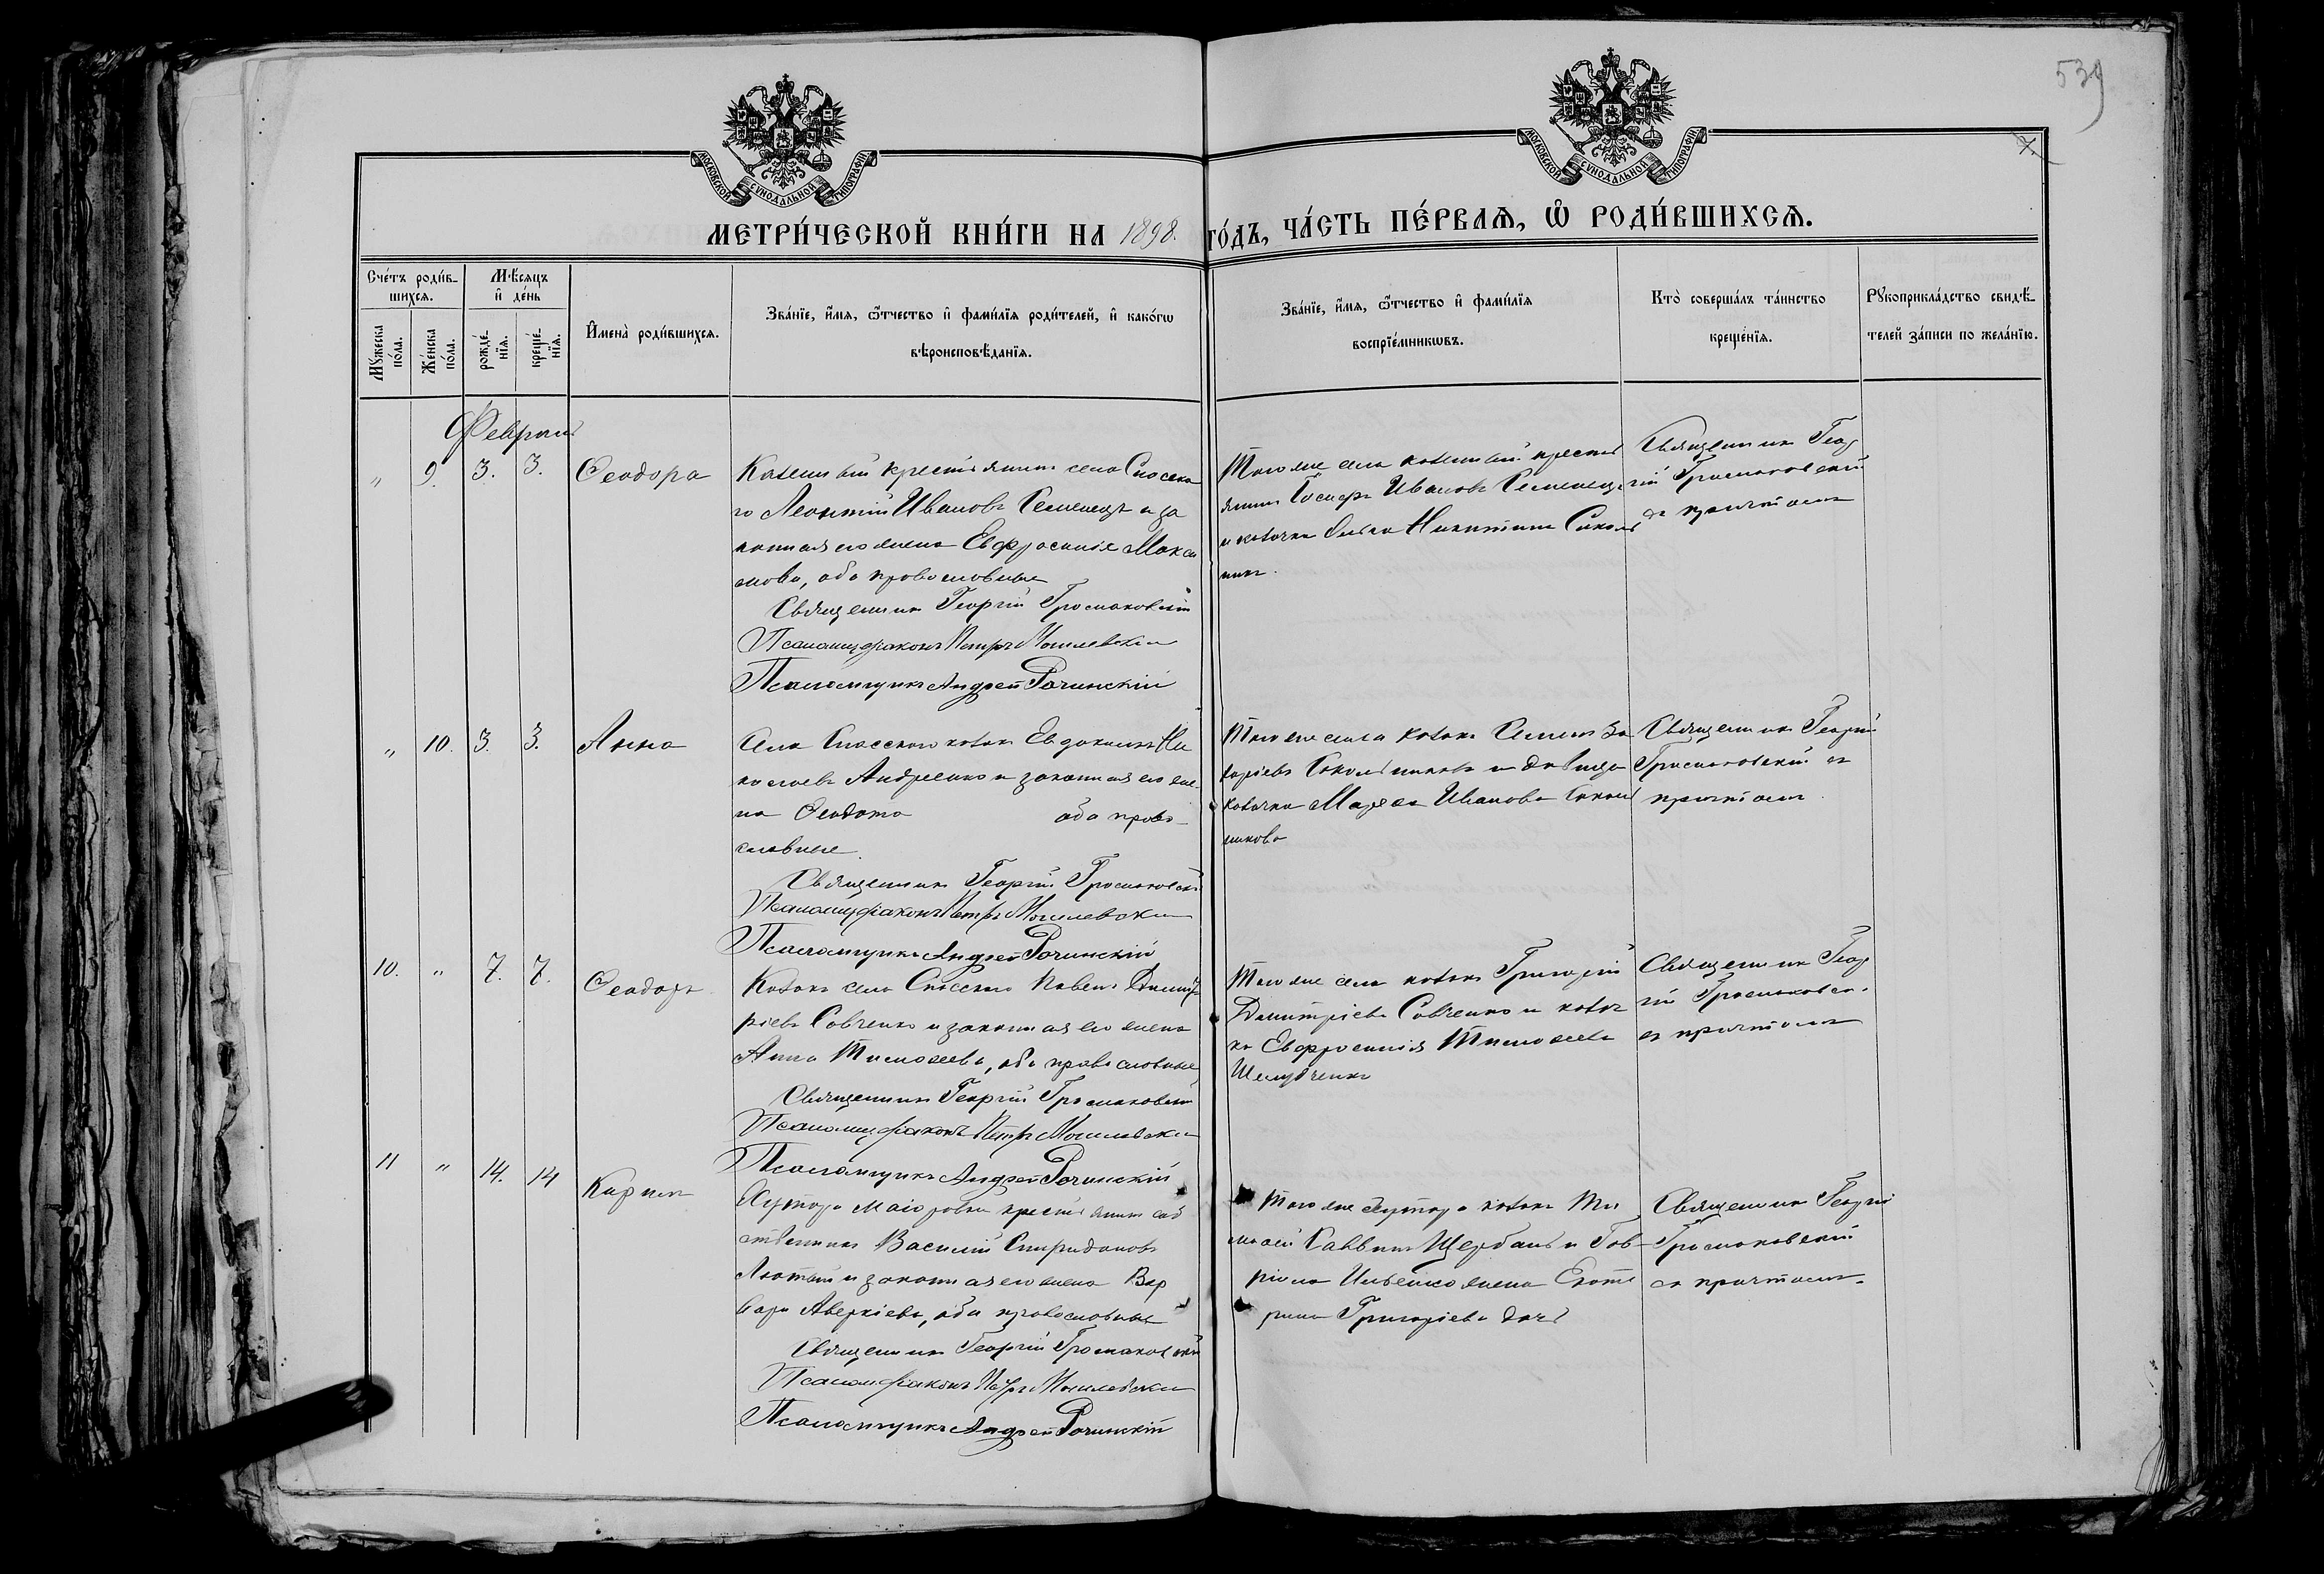 539
7.
МОСКОВСКОЙ СѴНОДАЛЬНОЙ ТИПОГРАФІИ
МОСКОВСКОЙ СѴНОДАЛЬНОЙ ТИПОГРАФІИ
МЕТРИ́ЧЕСКОЙ КНИ́ГИ НА 1898. ГО́ДЪ, ЧА́СТЬ ПЕ́РВАѦ, Ѽ РОДИ́ВШИХСѦ.
Сче́тъ роди́в-
шихсѧ.
Мꙋжеска
по́ла.
Же́нска
по́ла.
Мѣ́сѧцъ
и҆ де́нь
рожде́-
нїѧ.
креще́-
нїѧ.
И҆мена̀ роди́вшихсѧ.
Зва́нїе, и҆́мѧ, ѻ҆́тчество и҆ фами́лїѧ роди́телей, и҆ како́гѡ
вѣроисповѣ́данїѧ.
Зва́нїе, и҆́мѧ, ѻ҆́тчество и҆ фами́лїѧ
воспрїе́мникѡвъ.
Кто̀ соверша́лъ та́инство
креще́нїѧ.
Рꙋкоприкла́дство свидѣ́-
телей за́писи по жела́нїю.
Февраль
„ 9. 3. 3. Ѳеодора
Казенный крестьянинъ села Спасска
го Леонтій Ивановъ Семенецъ и за
конная его жена Евфросинія Макси
мова, оба православные
Священникъ Георгій Громаковскій
Псаломщ. діаконъ Петръ Могилевскій
Псаломщикъ Андрей Рачинскій
Того же села казенный кресть
янинъ Іосифъ Ивановъ Семенецъ
и козачка Никитина Соколь
никъ.
Священникъ Геор
гій Громаковскій
съ причтомъ
„ 10. 3. 3. Анна
Села Спасского козакъ Евдокимъ Ни
колаевъ Андреенко и законная его же-
на Ѳеодота оба право-
славные.
Священникъ Георгій Громаковскій
Псаломщ. діаконъ Петръ Могилевскій
Псаломщикъ Андрей Рачинскій
Того же села козакъ Семенъ За
харіевъ Сокольниковъ и дѣвица
козачка Марѳа Иванова Соколь
никова
Священникъ Георгій
Громаковскій съ
причтомъ
10. „ 7. 7. Ѳеодоръ
Козакъ села Спасскаго Павелъ Димит
ріевъ Савченко и законная его жена
Анна Тимоѳеева, оба православные
Священникъ Георгій Громаковскій
Псаломщ. діаконъ Петръ Могилевскій
Псаломщикъ Андрей Рачинскій
Того же села козакъ Григорій
Димитріевъ Савченко и козач
ка Евфросинія Тимоѳеева
Священникъ Геор
гій Громаковскій
съ причтомъ
11 „ 14. 14 Кириллъ
Хутора Маіоровки крестьянинъ соб
ственникъ Василій Спиридоновъ
Лютый и законная его жена Вар
вара Аверкіева, оба православные
Священникъ Георгій Громаковскій
Псаломщ. діаконъ Петръ Могилевскій
Псаломщикъ Андрей Рачинскій
Того же хутора козакъ Ти
моѳей Саввинъ Щербань и Гав-
ріила Ильенко жена Екате
рина Григоріева дочь
Священникъ Георгій
Громаковскій
съ причтомъ.